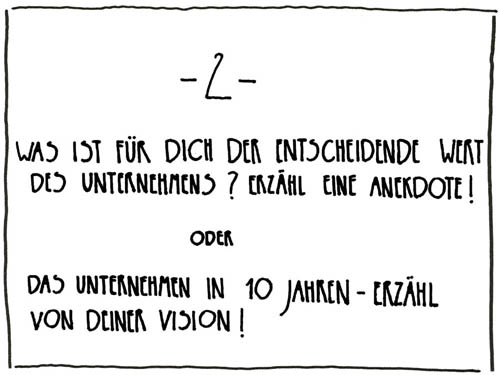 - 2 -
WAS IST FÜR DICH DER ENTSCHEIDENDE WERT
DES UNTERNEHMENS? ERZÄHL EINE ANEKDOTE!
ODER
DAS UNTERNEHMEN IN 10 JAHREN - ERZÄHL
VON DEINER VISION!